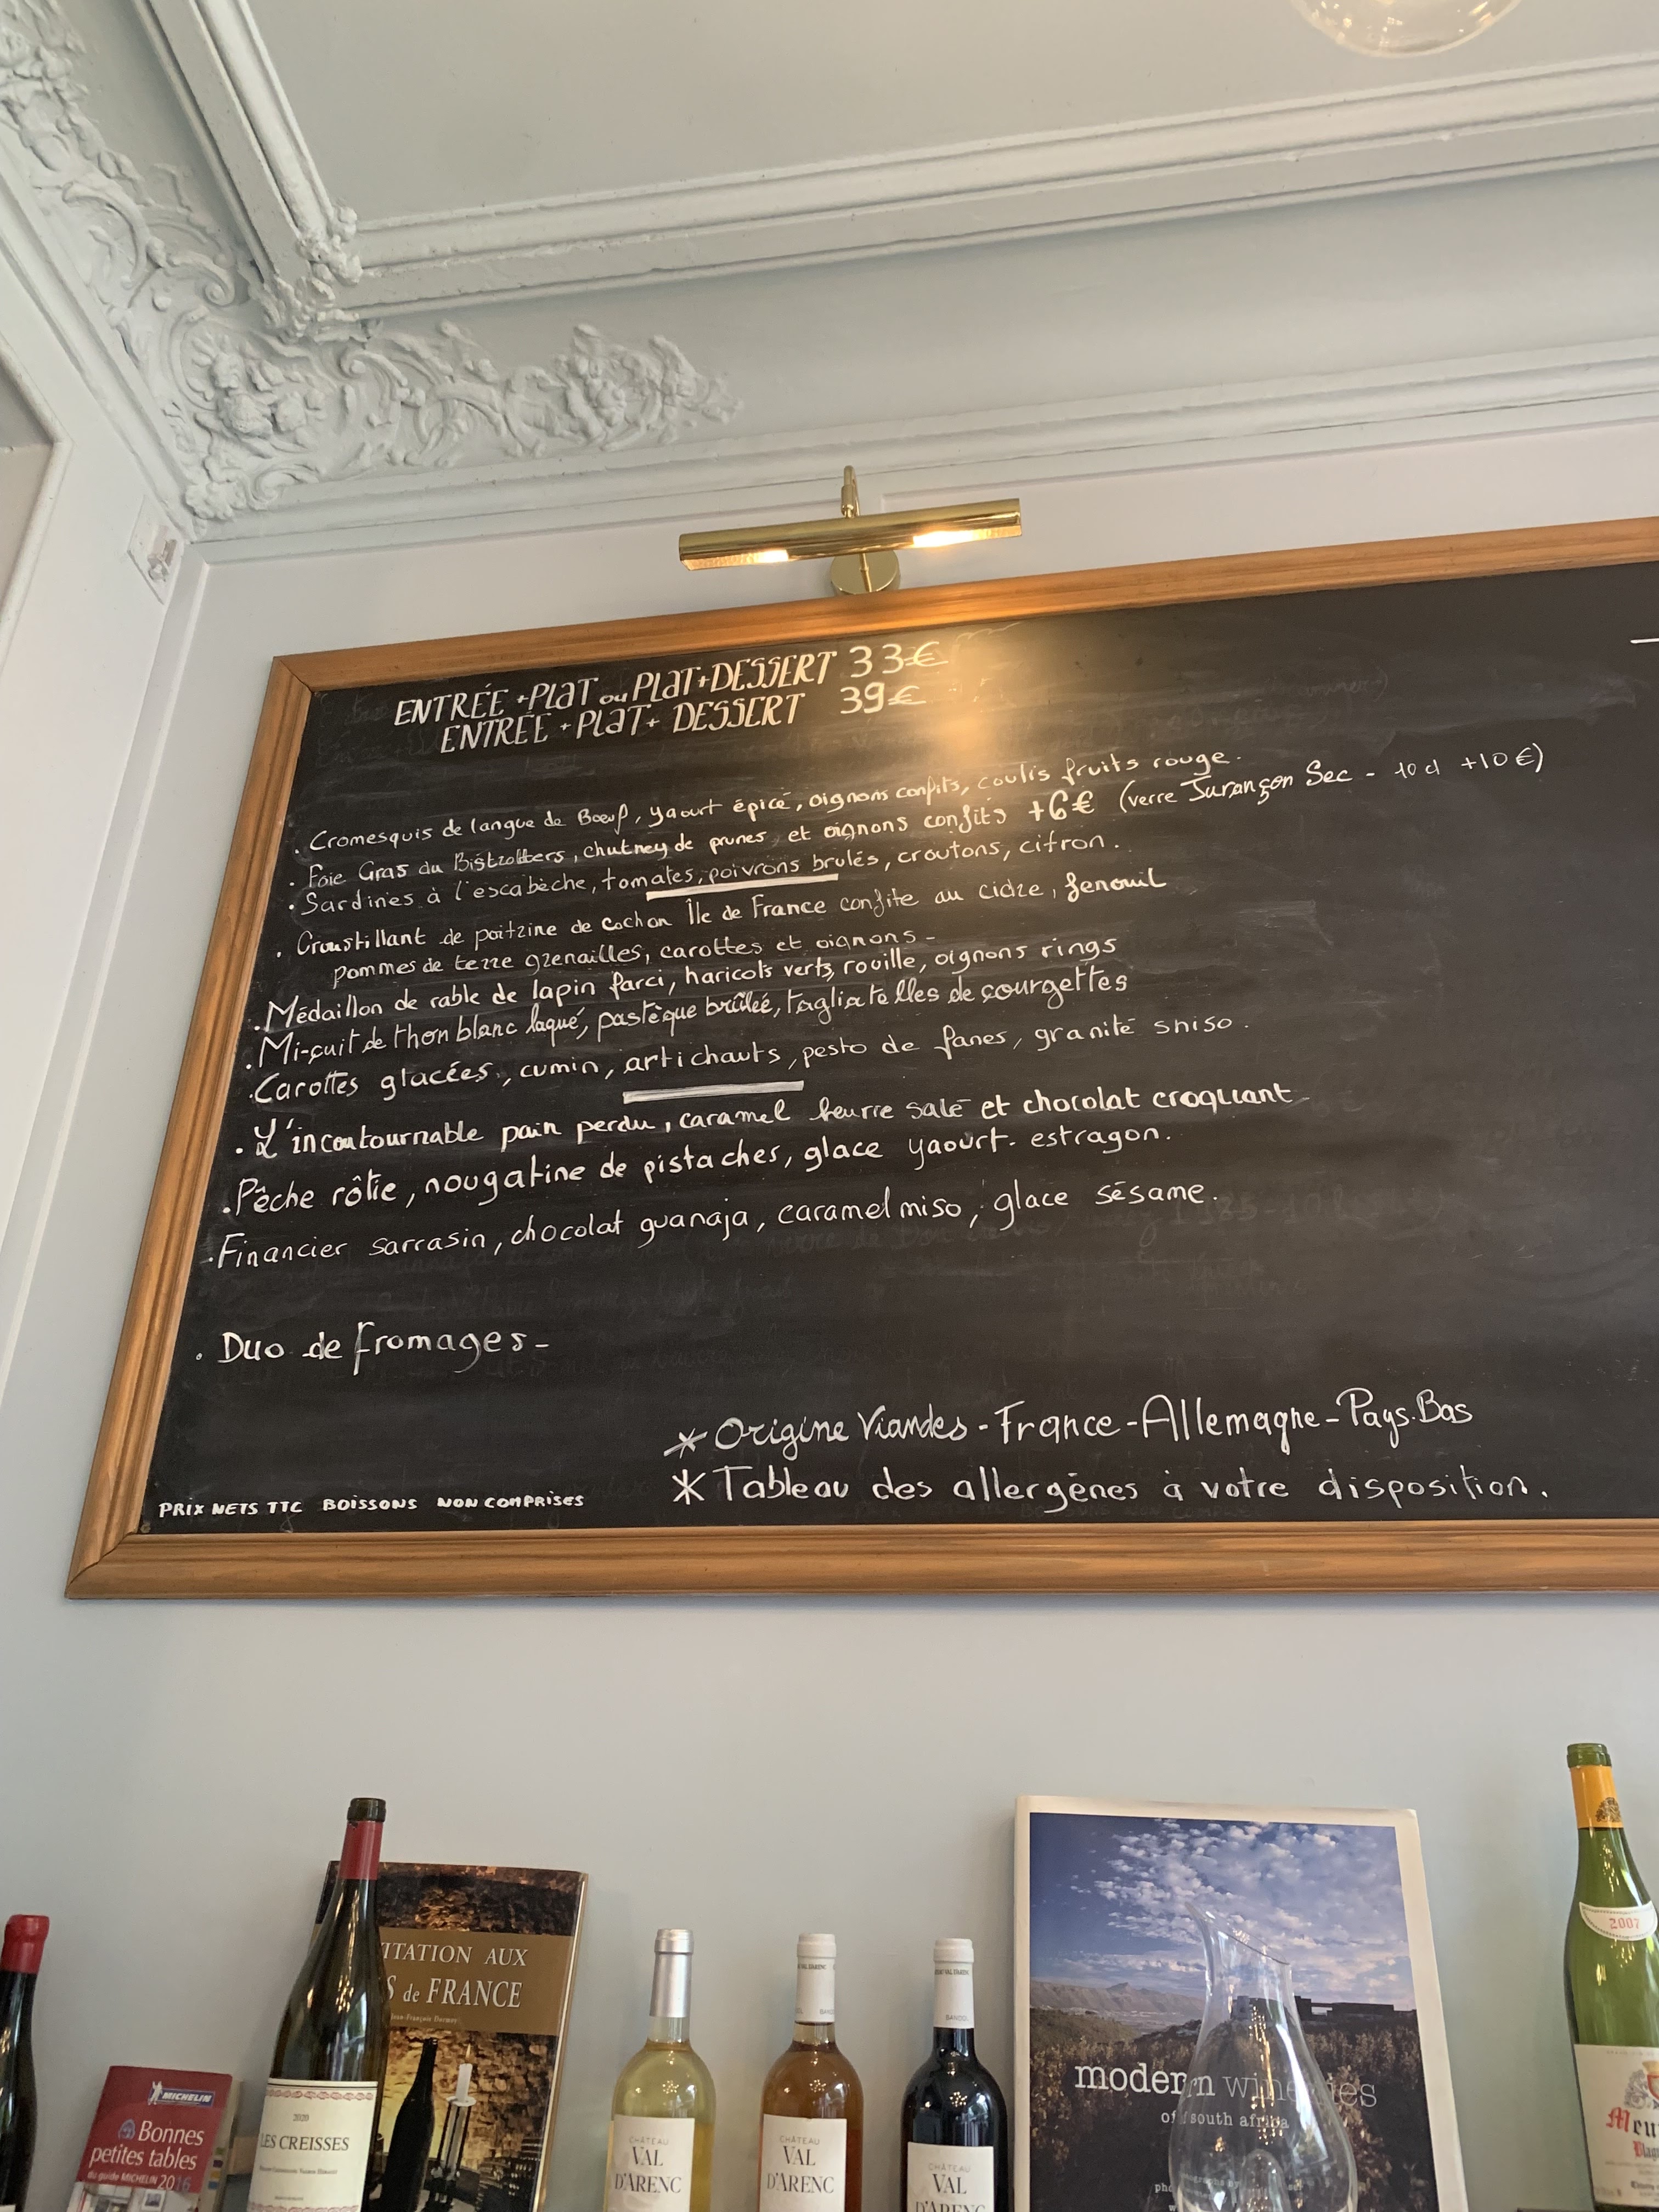 ENTRÉE +PLAT ou PLAT+DESSERT 33€
ENTRÉE +PLAT+ DESSERT 39€
. Cromesquis de langue de Boeuf, yaourt épicé, oignons confits, coulis fruits rouge.
. Foie Gras du Bistrotters, chutney de prunes et oignons confits +6€ (verre Jurançon Sec - 10 cl +10€)
. Sardines à l'escabèche, tomates, poivrons brulés, croutons, citron.
. Croustillant de poitrine de cochon Île de France confite au cidre, fenouil
pommes de terre grenailles, carottes et oignons -
. Médaillon de rable de lapin farci, haricots verts, rouille, oignons rings
. Mi-cuit de thon blanc laqué, pastèque brûlée, tagliatelles de courgettes
. Carottes glacées, cumin, artichauts, pesto de fanes, granité shiso.
. L'incontournable pain perdu, caramel beurre salé et chocolat croquant
. Pêche rôtie, nougatine de pistaches, glace yaourt-estragon.
. Financier sarrasin, chocolat guanaja, caramel miso, glace sésame.
. Duo de fromages -
* Origine Viandes - France - Allemagne - Pays-Bas
* Tableau des allergènes à votre disposition.
PRIX NETS TTC BOISSONS NON COMPRISES
MICHELIN
Bonnes
petites tables
du guide MICHELIN 2016
2020
LES CREISSES
ITATION AUX
S de FRANCE
CHÂTEAU
VAL
D'ARENC
BANDOL
CHÂTEAU
VAL
D'ARENC
BANDOL
CHÂTEAU
VAL
D'ARENC
modern wineries
of south africa
2007
Meu